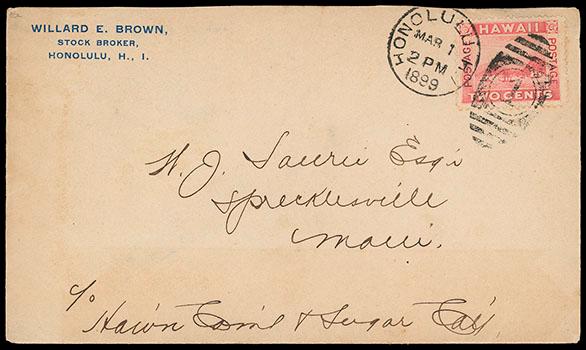 WILLARD E. BROWN,
STOCK BROKER,
HONOLULU, H., I.
HONOLULU H.I.
MAR 1
2 PM
1899
HAWAII
POSTAGE
POSTAGE
TWO CENTS
1
W. J. Lowrie Esqr
Sprecklesville
Maui.
c/o
Haw'n Com'l & Sugar Coy